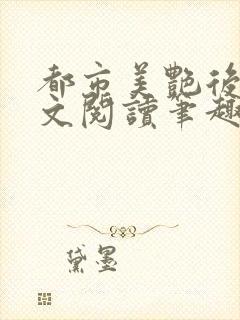 都市美艷後
文閱讀筆趣
黛墨